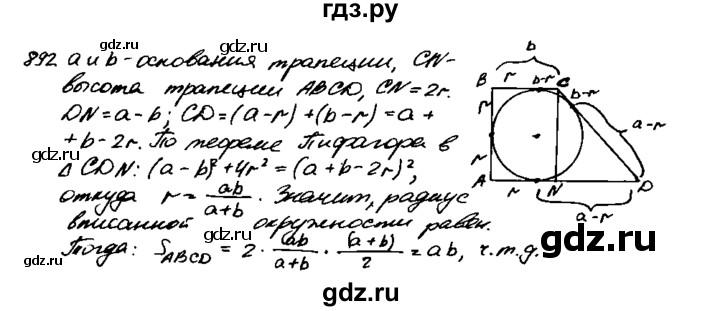 гдз.ру
892 a и b - основания трапеции, CN-
высота трапеции ABCD, CN=2r.
DN=a-b; CD=(a-r)+(b-r)=a+
+b-2r. По теореме Пифагора в
△CDN: (a-b)²+4r²=(a+b-2r)²,
откуда r = ab/(a+b). Значит, радиус
вписанной окружности равен.
Тогда: S_ABCD = 2 · (ab)/(a+b) · (a+b)/2 = ab, ч.т.д.
b
B r b-r C
r
a-r
r
A r N D
a-r
gdz.ru
gdz.ru